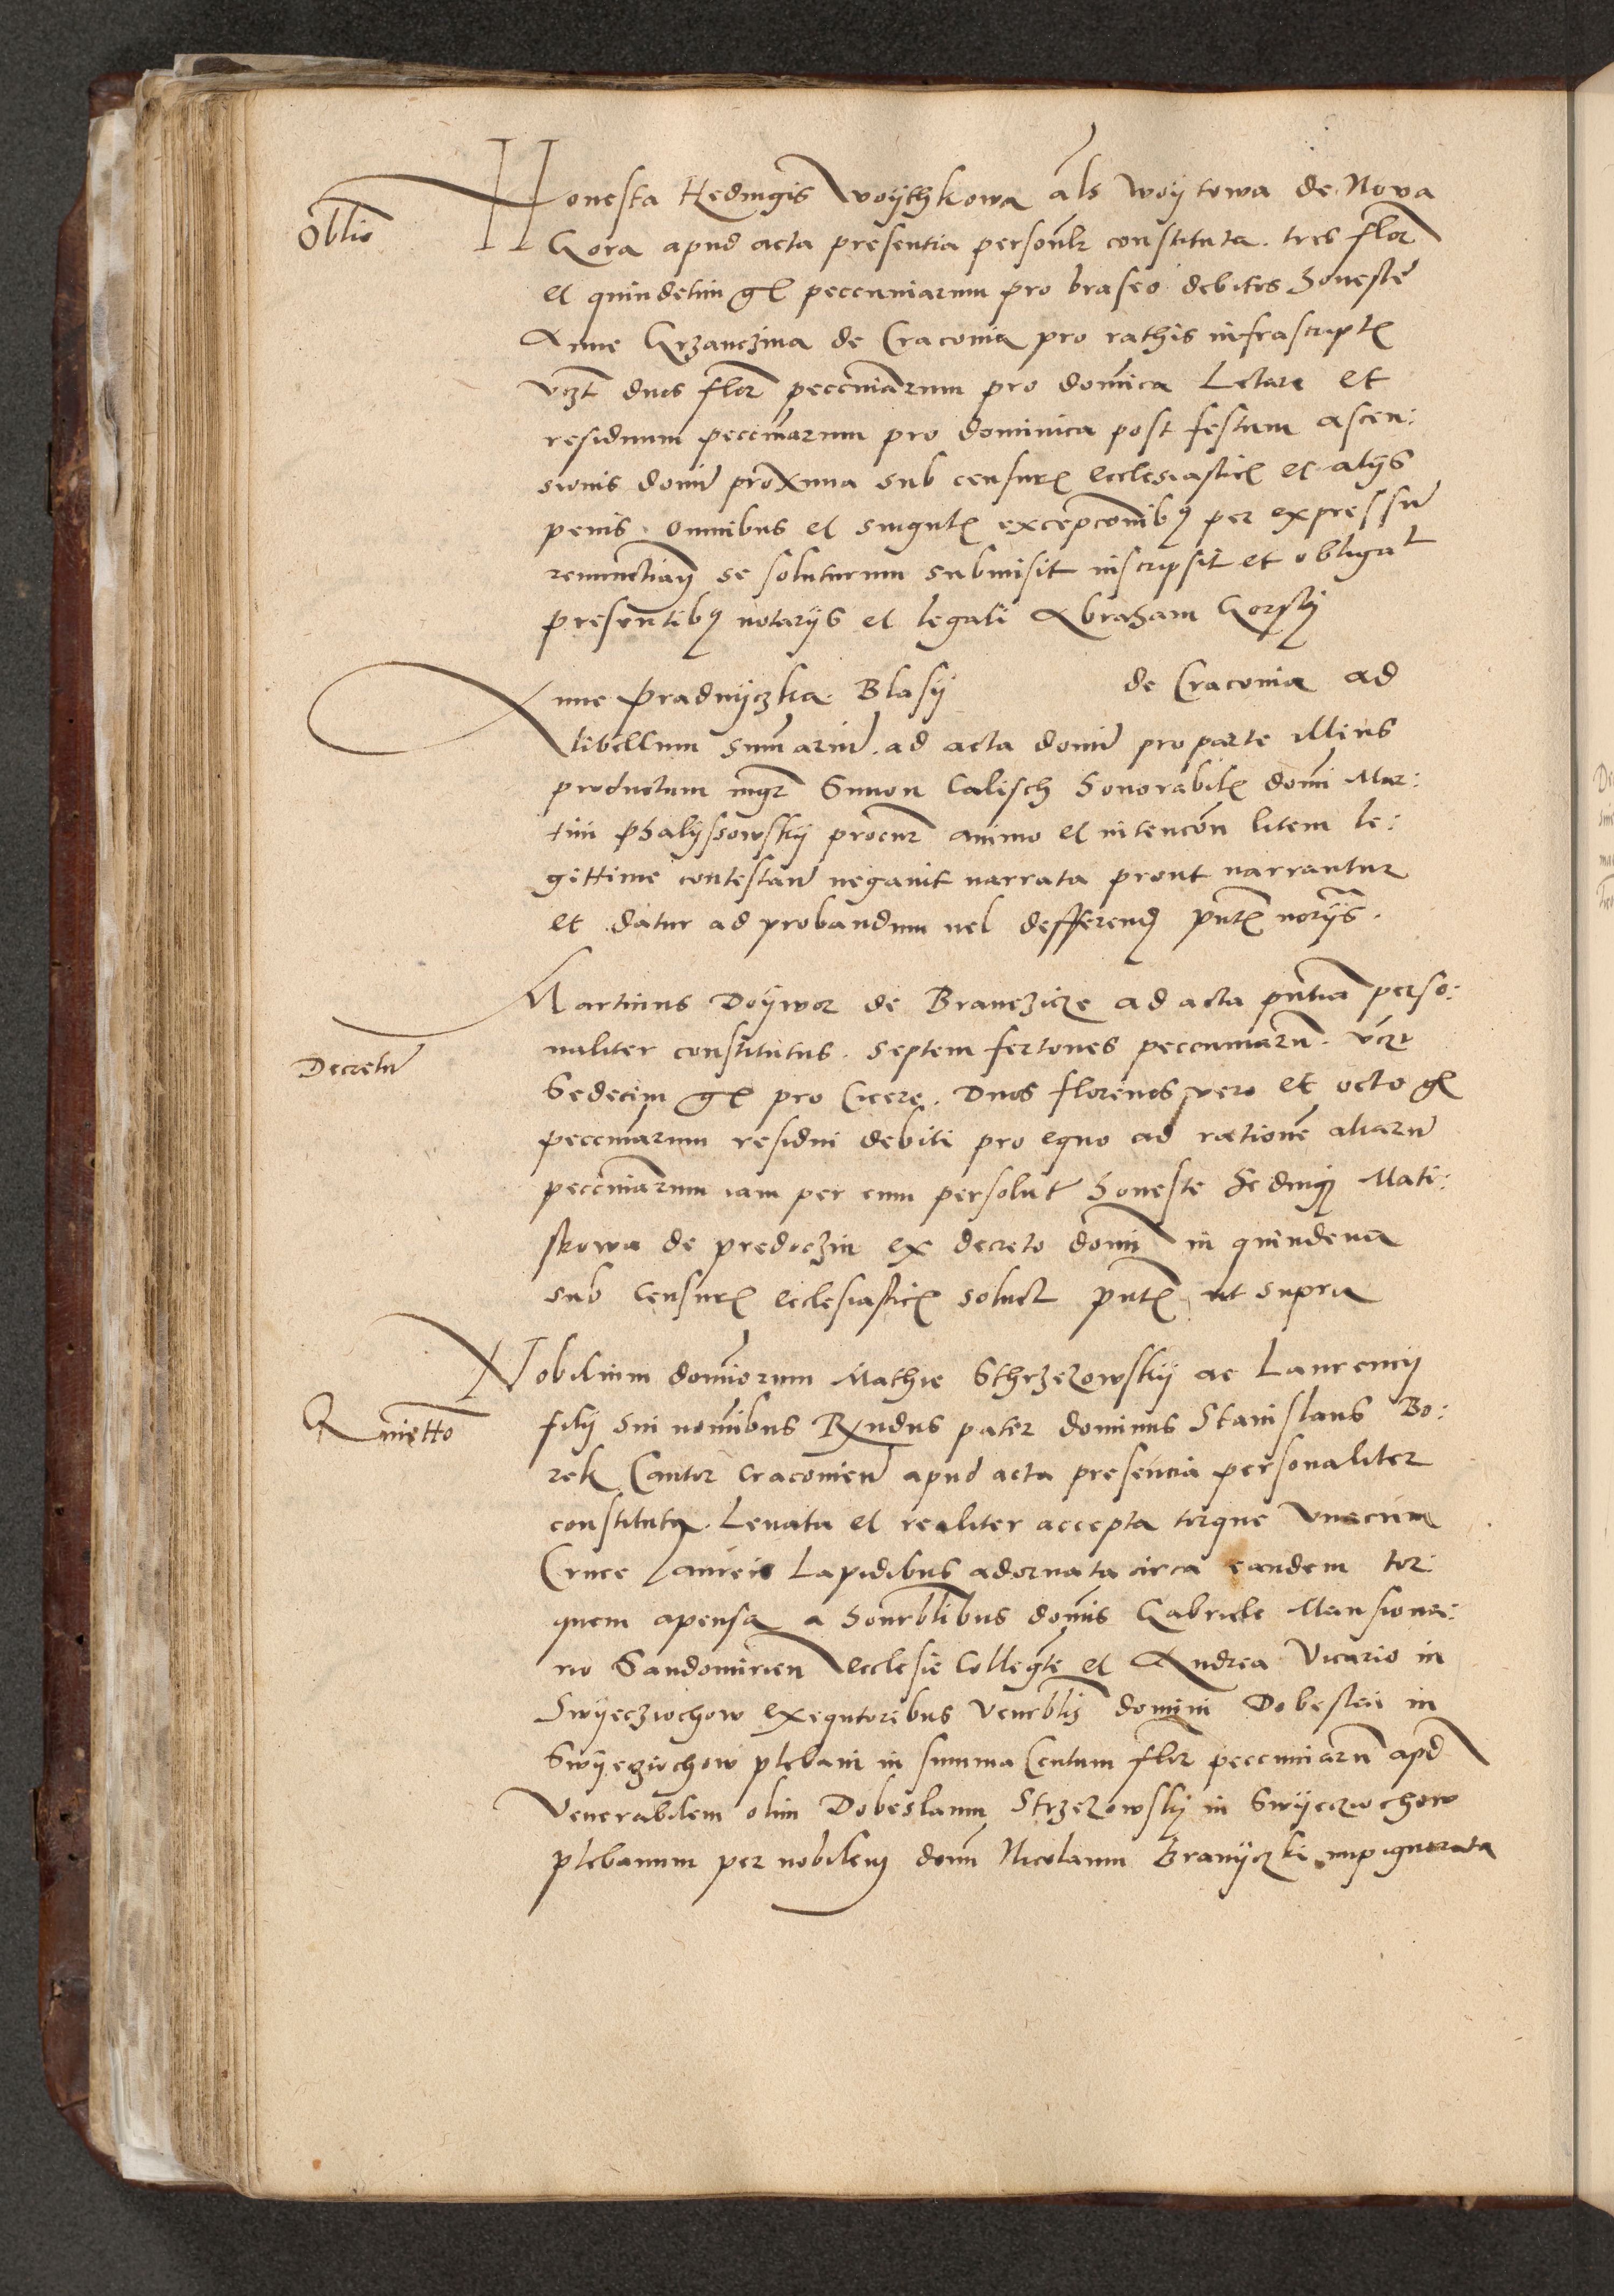 Oblio
Honesta Hedvigis Woythkowa als Woytowa de Nova
Gora apud acta presentia personlr constituta. tres flor
et quindecim gr peccuniarum pro braseo debitos honeste
Anne Grzanczina de Cracovia pro rathis infrascript
vczt duos flor peccuniarum pro dominica Letare et
residuum peccuniarum pro dominica post festum ascen:
sionis domini proxima sub censur ecclesiastic et alijs
penis omnibus et singul excepcionibus per expressum
renunctian se soluturum submisit inscripsit et obligat
presentibus notarijs et legali Abraham Gorsky
Anne Pradnyczka. Blasij de Cracovia ad
libellum summarium. ad acta domini pro parte illius
productum mgr Simon Calisch honorabil domini Mar:
tini Phalyssowskij procur animo et intencion litem le:
gittime contestan negavit narrata prout narrantur
et datur ad probandum vel defferend pnt norijs.
Decretum
Martinus Doywor de Branczicze ad acta pntia perso:
naliter constitutus. septem fertones peccuniarum. vczt
Sedecim gr pro Cicere. Duos florenos vero et octo gr
peccuniarum residui debiti pro equo ad rationem aliarum
peccuniarum iam per eum persolut honeste Hedvigi Mati:
skowa de predoczin ex decreto domini in quindena
sub Censur ecclesiastic soluet pnt ut supra
Quietto
Nobilium dominorum Mathie Sthrzezowskij ac Laurencij
filij sui nominibus Rxndus pater dominus Stanislaus Bo:
rek Cantor Cracovien apud acta presencia personaliter
constitutus. Levata et realiter accepta torque Unacum
Cruce aureis Lapidibus adornata circa eandem tor:
quem apensa a honrblibus dominis Gabriele Mansiona:
rio Sandomirien ecclesie Collegte et Andrea Vicario in
Swyeczichow exequtoribus Venrblis domini Dobeslai in
Swyeczichow plebani in summa Centum flor peccuniarum apd
Venerabilem olim Dobeslaum Strzezowsky in Swyeczichow
plebanum per nobilem domi Nicolaum Branyczki impignorata